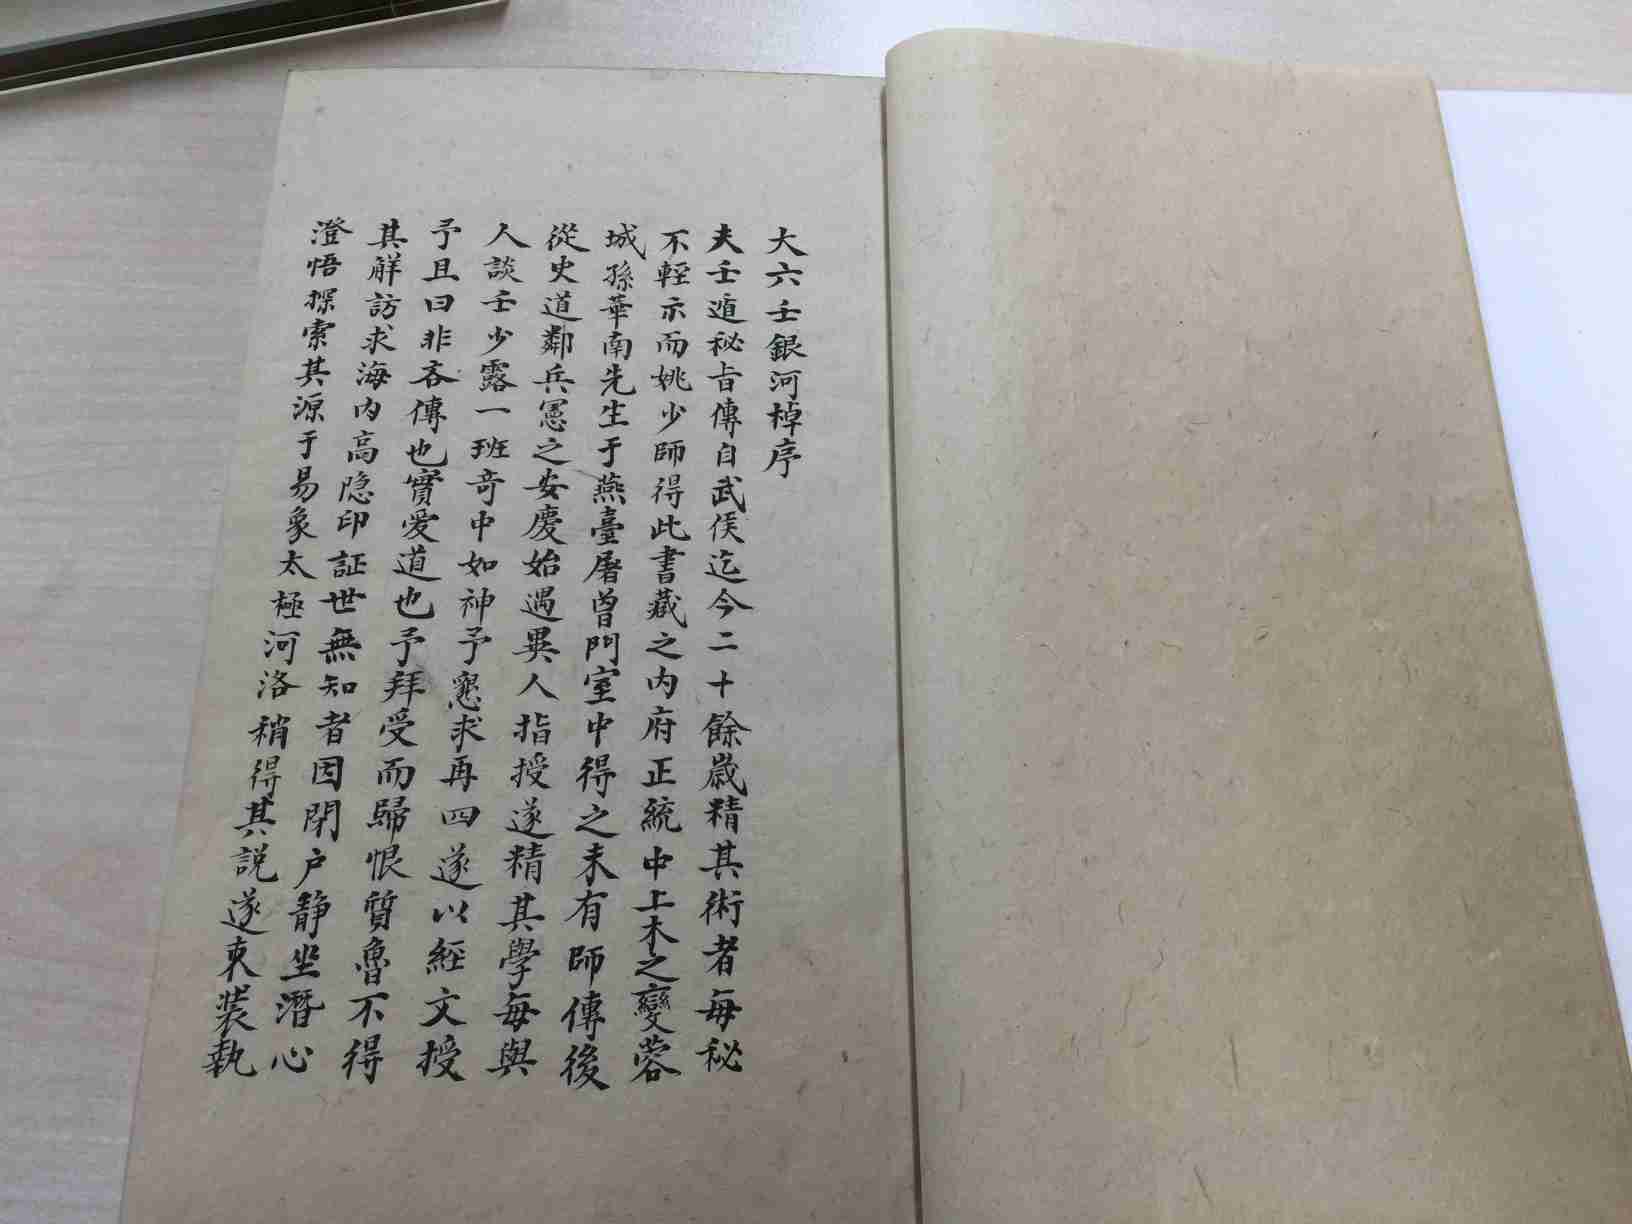 大六壬銀河棹序
夫壬遁秘旨傳自武侯迄今二十餘歲精其術者每秘
不輕示而姚少師得此書藏之内府正統中土木之變蓉
城孫華南先生于燕臺屠曾門室中得之未有師傳後
從史道鄰兵憲之安慶始遇異人指授遂精其學每與
人談壬少露一班奇中如神予懇求再四遂以經文授
予且曰非吝傳也實愛道也予拜受而歸恨質魯不得
其解訪求海内高隐印証世無知者因閉户静坐潛心
澄悟探索其源于易象太極河洛稍得其説遂束装執